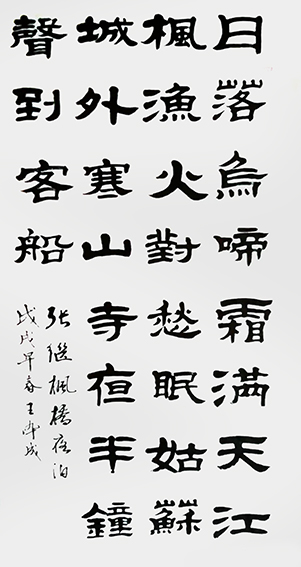 日落烏啼霜满天江
楓漁火對愁眠姑蘇
城外寒山寺夜半鐘
聲到客船
张继楓橋夜泊
戊戌早春王